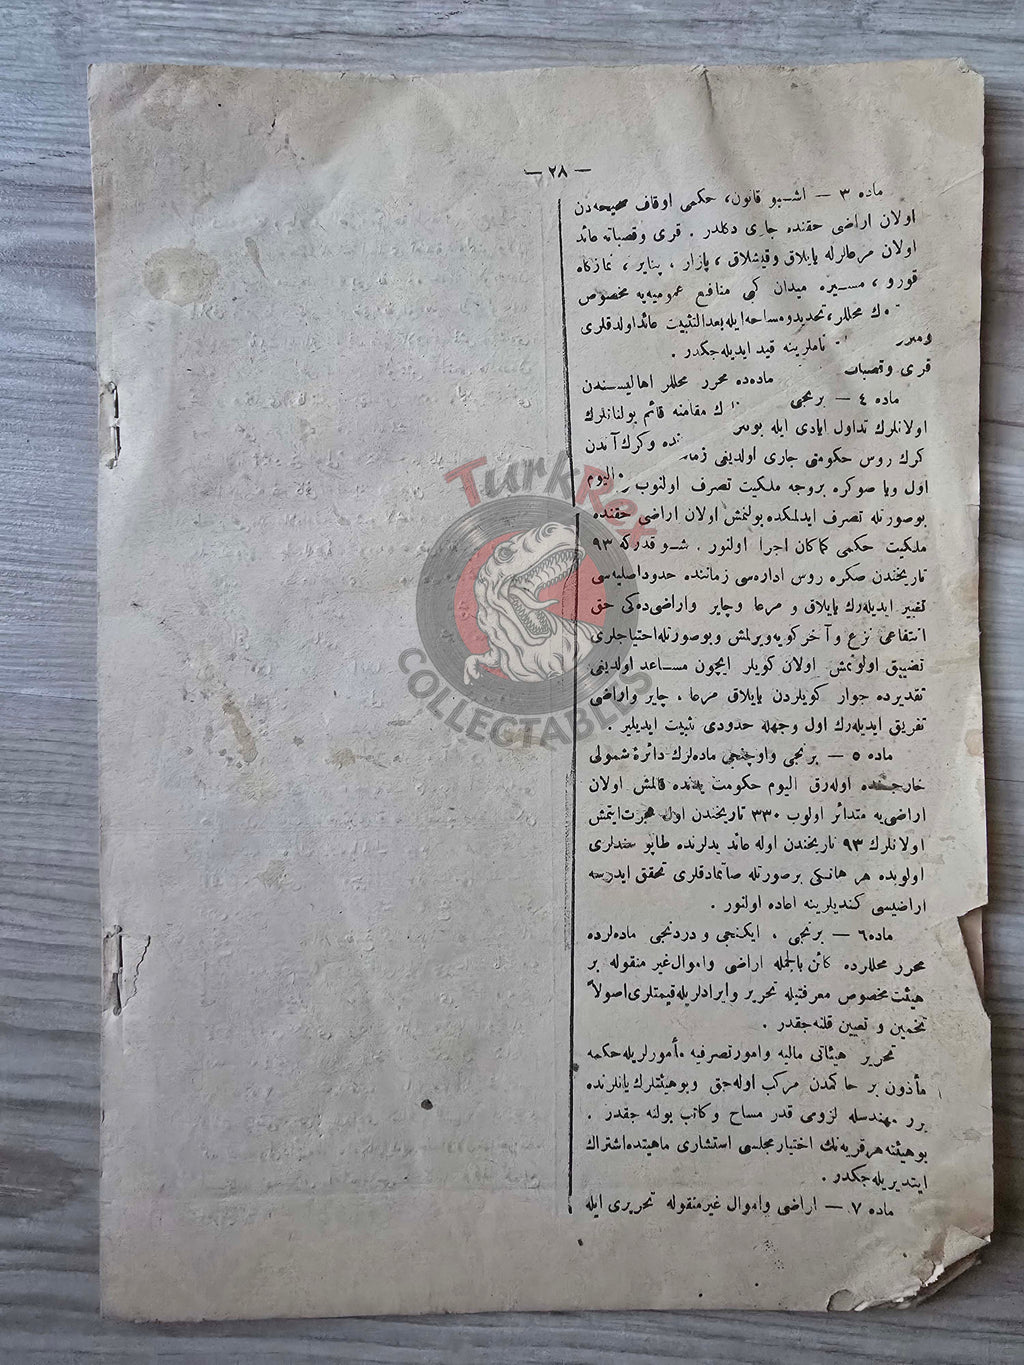 — ٢٨ —
ماده ٣ — اشبو قانون، حكمى اوقاف صحيحه‌دن
اولان اراضى حقنده جارى دكلدر . قرى وقصباته عائد
اولان مرعالرله يايلاق وقيشلاق ، پازار ، پناير ، نمازكاه
قورو ، مسيره ميدان كبى منافع عموميه‌يه مخصوص
محللر، تحديد ومساحه ايله بعدالتثبيت عائد اولدقلرى
قرى وقصبات ناملرينه قيد ايديله‌جكدر .
ماده ٤ — برنجى ماده‌ده محرر محللر اهاليسندن
اولانلرك تداول ايادى ايله مقامنه قائم بولنانلرك
كرك روس حكومتى جارى اولديغى وكرك آندن
اول ويا صوكره بروجه ملكيت تصرف اولنوب اليوم
بوصورتله تصرف ايدلمكده بولنمش اولان اراضى حقنده
ملكيت حكمى كماكان اجرا اولنور . شو قدركه ٩٣
تاريخندن صكره روس اداره‌سى زماننده حدود اصليه‌سى
تغيير ايديله‌رك يايلاق و مرعا و چاير واراضى‌ده‌كى حق
انتفاعى نزع و آخر كويه ويرلمش وبوصورتله احتياجلرى
تضييق اولونمش اولان كويلر ايچون مساعد اولديغى
تقديرده جوار كويلردن يايلاق مرعا ، چاير واراضى
تفريق ايديله‌رك اول وجهله حدودى تثبيت ايديلير .
ماده ٥ — برنجى واوچنجى ماده‌لرك دائرۀ شمولى
خارجنده اوله‌رق اليوم حكومت يدنده قالمش اولان
اراضى‌يه متدائر اولوب ٣٣٠ تاريخندن اول هجرت ايتمش
اولانلرك ٩٣ تاريخندن اوله عائد يدلرنده طاپو سندلرى
اولوبده هر هانكى برصورتله صاتمادقلرى تحقق ايدرسه
اراضيسى كنديلرينه اعاده اولنور .
ماده ٦ — برنجى ، ايكنجى و دردنجى ماده‌لرده
محرر محللرده كائن بالجمله اراضى واموال غير منقوله بر
هيئت مخصوص معرفتيله تحرير وايرادلريله قيمتلرى اصولاً
تخمين و تعيين قلنه‌جقدر .
تحرير هيئاتى ماليه وامور تصرفيه مأمورلريله حكمه
مأذون بر حاكمدن مركب اوله‌جق وبوهيئتلرك يانلرنده
برر مهندسله لزومى قدر مساح وكاتب بولنه جقدر .
بوهيئته هر قريه‌نك اختيار مجلسى استشارى ماهيتده اشتراك
ايتديريله‌جكدر .
ماده ٧ — اراضى واموال غيرمنقوله تحريرى ايله
TurkRex
COLLECTABLES